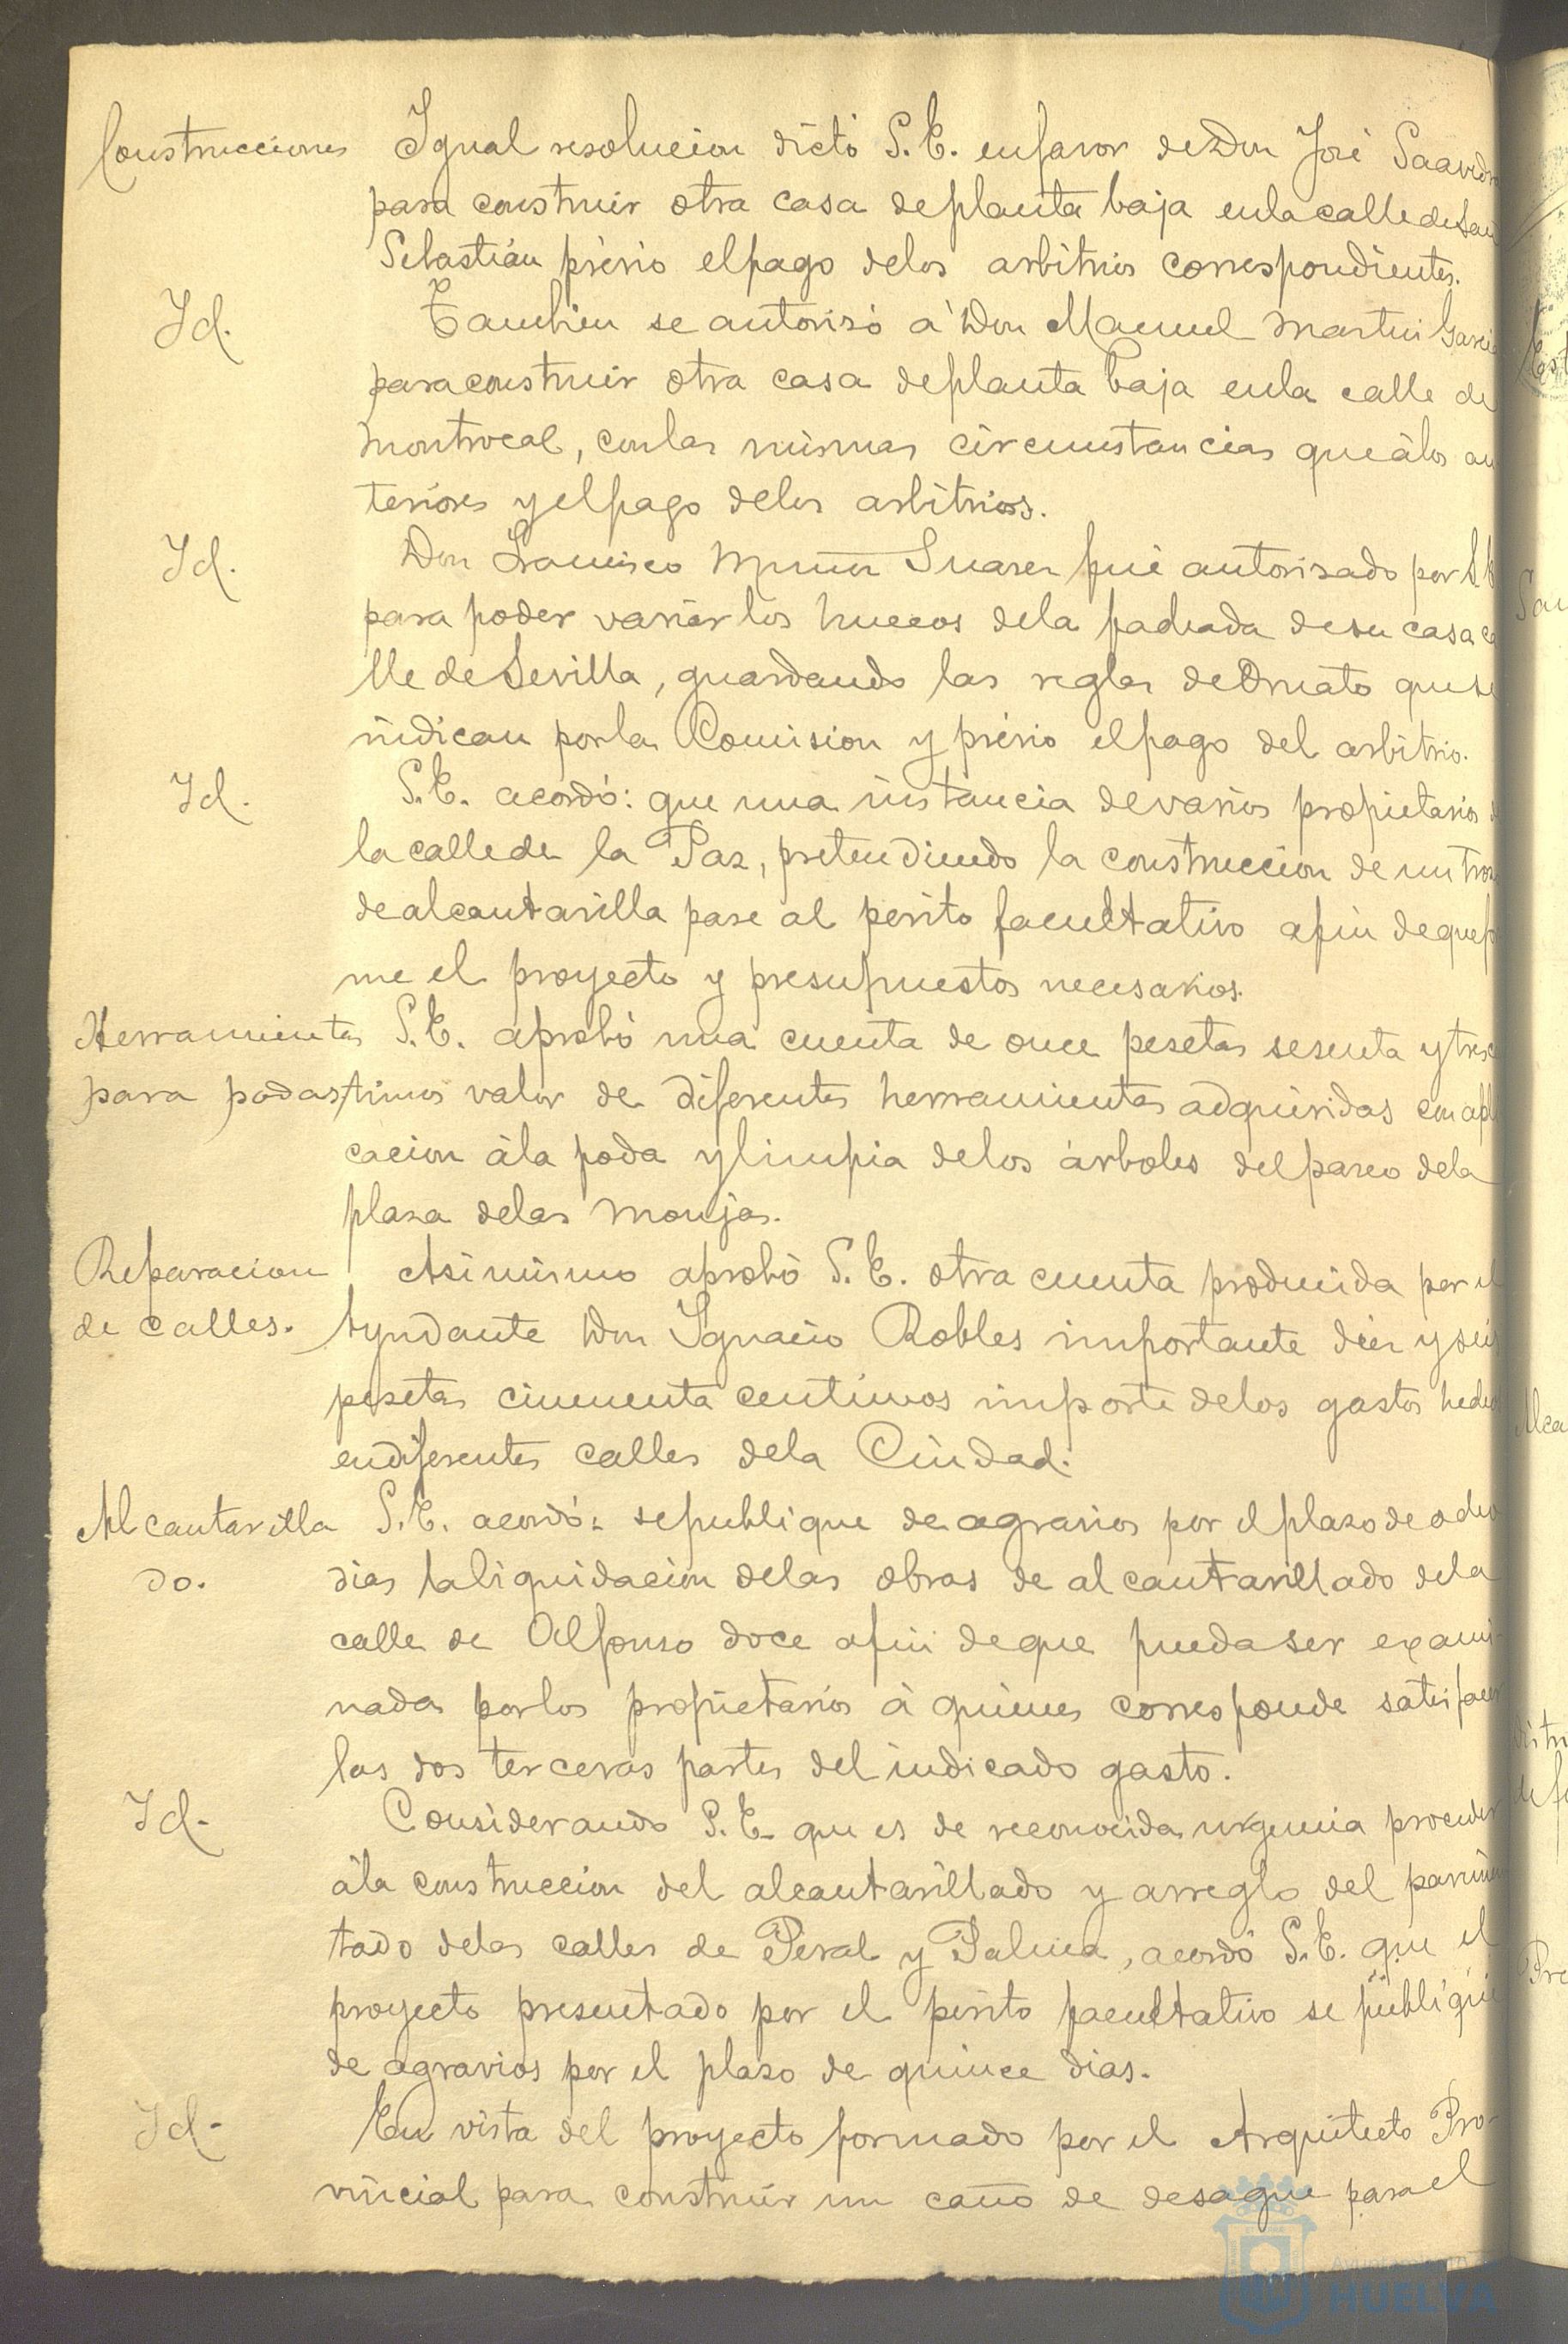 Construcciones Igual resolucion dictó S.E. en favor de Don José Saavedra
para construir otra casa de planta baja en la calle de San
Sebastián prévio el pago de los arbitrios correspondientes.
Id. Tambien se autorizó á Don Manuel Martin Garcia
para construir otra casa de planta baja en la calle de
Montrocal, con las mismas circunstancias que á los an
teriores y el pago de los arbitrios.
Id. Don Francisco Muñoz Suarez fué autorizado por S.E.
para poder variar los huecos de la fachada de su casa ca
lle de Sevilla, guardando las reglas de Ornato que se
indican por la Comision y prévio el pago del arbitrio.
Id. S.E. acordó: que una instancia de varios propietarios de
la calle de la Paz, pretendiendo la construccion de un trozo
de alcantarilla pase al perito facultativo afin de que for
me el proyecto y presupuestos necesarios.
Herramientas S.E. aprobó una cuenta de once pesetas sesenta y tres cen
para podas timos valor de diferentes herramientas adquiridas con apli
cacion á la poda y limpia de los árboles del paseo de la
plaza de las Monjas.
Reparacion Asi mismo aprobó S.E. otra cuenta producida por el
de calles. Ayudante Don Ignacio Robles importante diez y seis
pesetas cincuenta centimos importe de los gastos hechos
en diferentes calles de la Ciudad.
Alcantarilla S.E. acordó: se publique de agravios por el plazo de ocho
do. dias la liquidacion de las obras de alcantarillado de la
calle de Alfonso doce afin de que pueda ser exami
nada por los propietarios á quienes corresponde satisfacer
las dos terceras partes del indicado gasto.
Id. Considerando S.E. que es de reconocida urgencia proceder
á la construccion del alcantarillado y arreglo del pavimen
tado de las calles de Peral y Palma, acordó S.E. que el
proyecto presentado por el perito facultativo se publique
de agravios por el plazo de quince dias.
Id. En vista del proyecto formado por el Arquitecto Pro-
vincial para construir un caño de desague para el
HUELVA